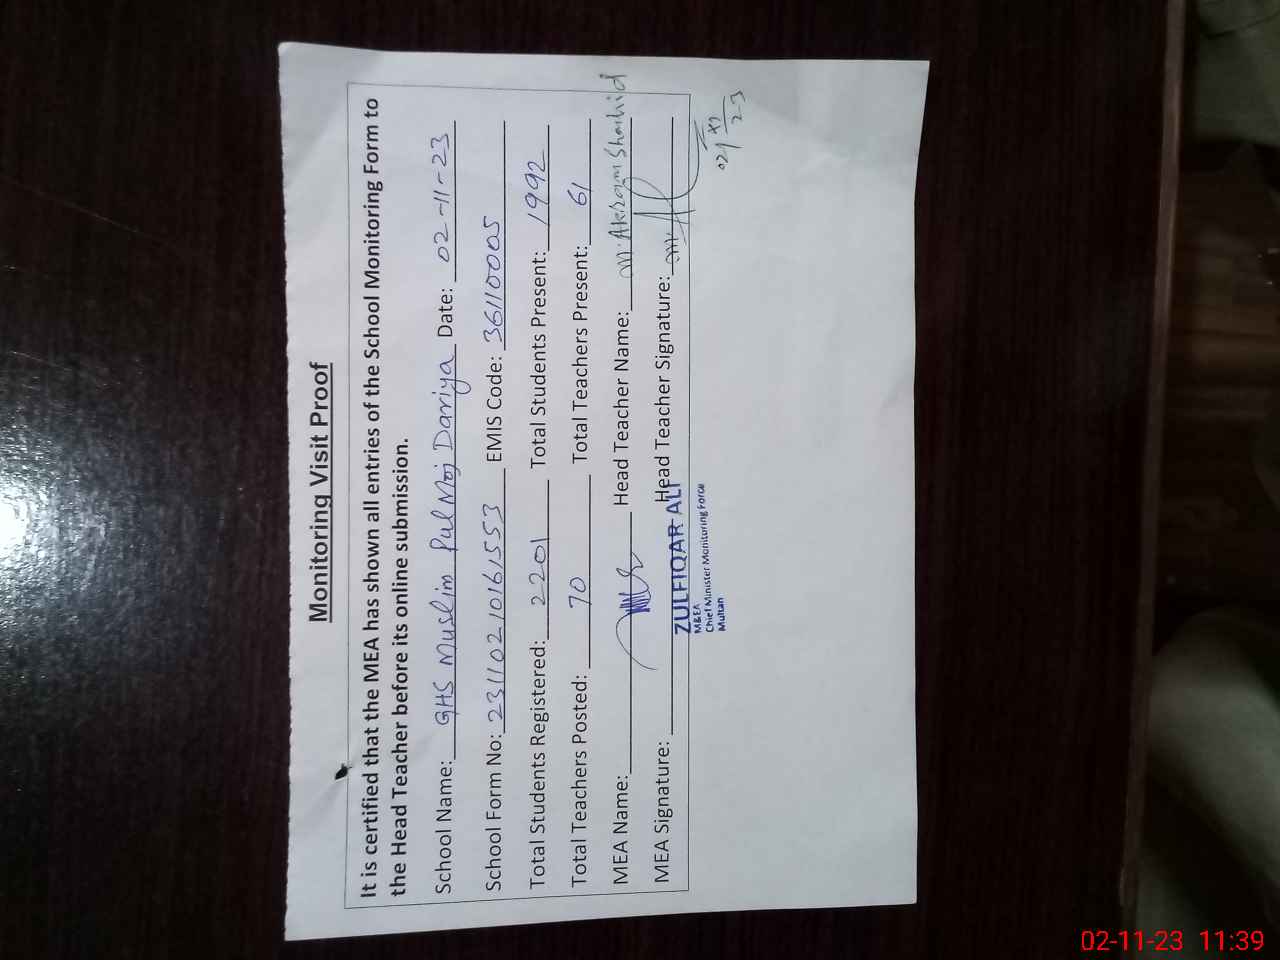 Monitoring Visit Proof
It is certified that the MEA has shown all entries of the School Monitoring Form to
the Head Teacher before its online submission.
School Name: GHS Muslim Pul Moj Dariya Date: 02-11-23
School Form No: 23110210161553 EMIS Code: 36110005
Total Students Registered: 2201 Total Students Present: 1992
Total Teachers Posted: 70 Total Teachers Present: 61
MEA Name: Head Teacher Name: M. Akram Shahid
MEA Signature: Head Teacher Signature:
ZULFIQAR ALI
M&EA
Chief Minister Monitoring Force
Multan
02-11-23 11:39